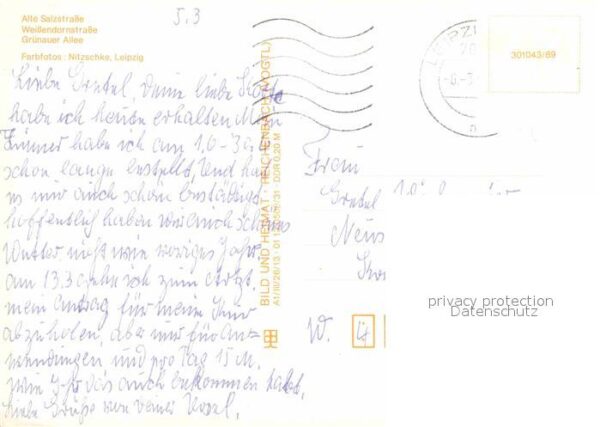 5.3
Alte Salzstraße
Weißdornstraße
Grünauer Allee
Farbfotos: Nitzschke, Leipzig
Liebe Gretel, deine liebe Karte
habe ich heute erhalten Mein
Zimmer habe ich am
schon lange bestellt, Und hat
es mir auch schon bestätigt
hoffentlich haben wir auch schönes
Wetter, nicht wie voriges Jahr
am 13.3 gehe ich zum Arzt.
mein Antrag für meine Kur
abzuholen, aber nur für An-
wendungen und pro Tag 15 M.
wie Ihr das auch bekommen habt.
Liebe Grüße von deiner
BILD UND HEIMAT · REICHENBACH (VOGTL)
DDR 0,20 M
LEIPZI
301043/89
Frau
Gretel
Neus
W.
privacy protection
Datenschutz